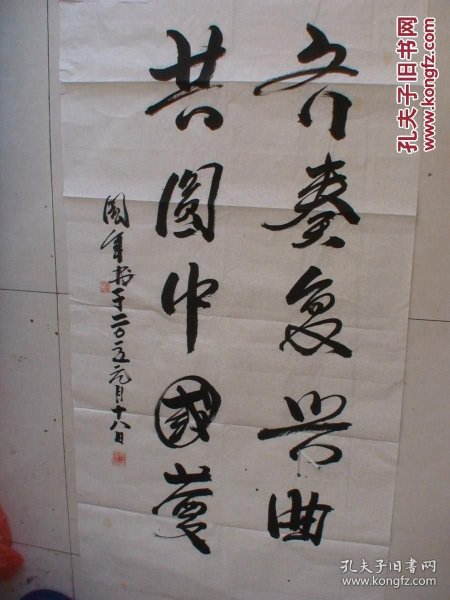 齐奏复兴曲
共圆中国梦
国年书于二〇一五元月十八日
孔夫子旧书网
www.kongfz.com
孔夫子旧书网
www.kongfz.com